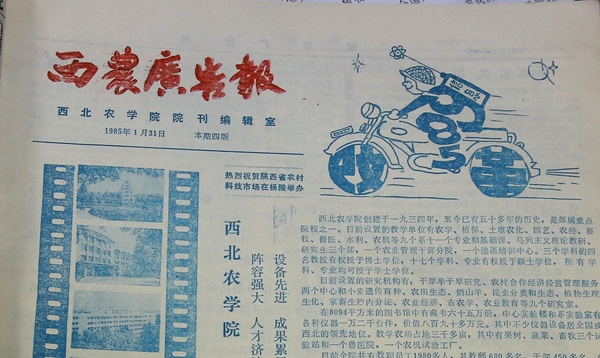 西農廣告報
西北农学院院刊编辑室
1985年1月31日 本期四版
改革
热烈祝贺陕西省农村
科技市场在杨陵举办
西北农学院
设备先进 成果累
阵容强大 人才济
西北农学院创建于一九三四年，至今已有五十多年的历史，是部属重点
院校之一。目前设置的教学单位有农学、植保、土壤农化、园艺、农经、畜
牧、兽医、水利、农机等九个系十一个专业和基础课、马列主义理论教研、
研究生三个部，一个农业管理干部分院，一个德语培训中心。三个学科的四
名教授有权授予博士学位，十七个学科、专业有权授予硕士学位。所有学
科、专业均可授予学士学位。
目前设置的研究机构有：干旱半干旱研究、农村合作经济经营管理服务
两个中心和小麦遗传育种、农田生态、奶山羊、昆虫分类和生态、植物生理
生化、家畜生殖内分泌、农业经济、古农学、农业教育等九个研究室。
在8094平方米的图书馆中有藏书六十五万册，中心实验楼和各实验室有
各种仪器一万二千台件，价值八百九十多万元。其中不少仪器设备居全国或
西北的领先地位。教学农场占地三千多亩，其中有果树、蔬菜、畜牧三个试
验站和一个兽医院，一个农机试验工厂。
目前全院共有教职员工1980多人，其教师680名，干部450名